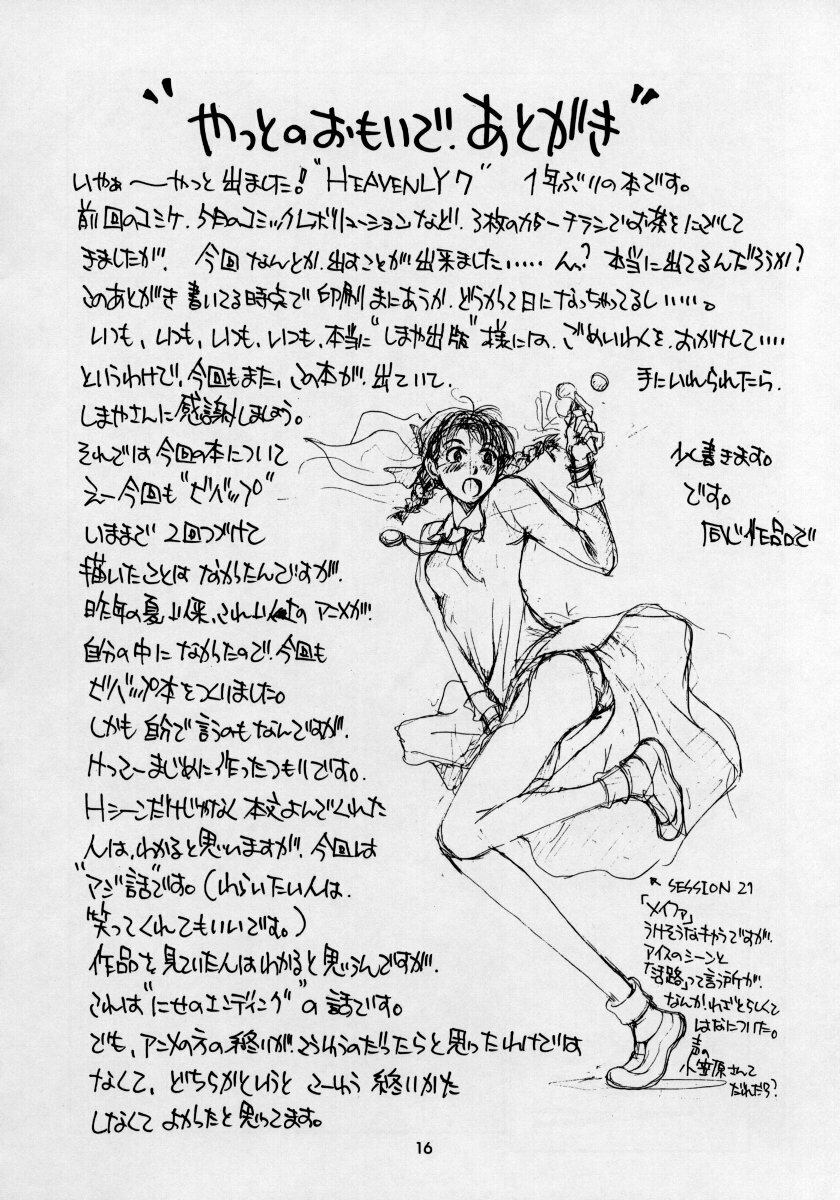 やっとのおもいで!あとがき
いやぁ〜やっと出ました!"HEAVENLY7" 1年ぶりの本です。
前回のコミケ、5月のコミックレボリューションなど!、3枚のカラーチラシでお茶をにごして
きましたが!今回なんとか、出すことが出来ました……ん?本当に出てるんだろうか?
このあとがき書いてる時点で印刷まにあうか、どうかって日になっちゃってるし……。
いつも、いつも、いつも、いつも、本当に"しまや出版"様には、ごめいわくを、おかけして……
というわけで、今回もまた、この本が、出ていて、手にいれられたら、
しまやさんに感謝しましょう。
それでは今回の本について少く書きます。
えー今回も"ビバップ"です。
いままで2回つづけて同じ作品で
描いたことはなかったんですが、
昨年の夏以来、これ以上のアニメが!
自分の中になかったので!今回も
ビバップ本をつくりました。
しかも自分で言うのもなんですが、
けっこーまじめに作ったつもりです。
Hシーンだけじゃなく本文よんでくれた
人は、わかると思いますが、今回は
"マジ話"です。(わらいたい人は、
笑ってくれてもいいです。)
作品を見ていた人はわかると思うんですが、
これは"にせのエンディング"の話です。
でも、アニメの方の終りが、こういうのだったらと思ったわけでは
なくて、どちらかというと こーゆう終いかた
しなくてよかったと思ってます。
SESSION 21
「メイファ」
うけそうなキャラですが、
アイスのシーンと
「活路」って言う所が、
なんかわざとらしくて
はなについた。
声の
小笠原さんて
だれだろ?
16